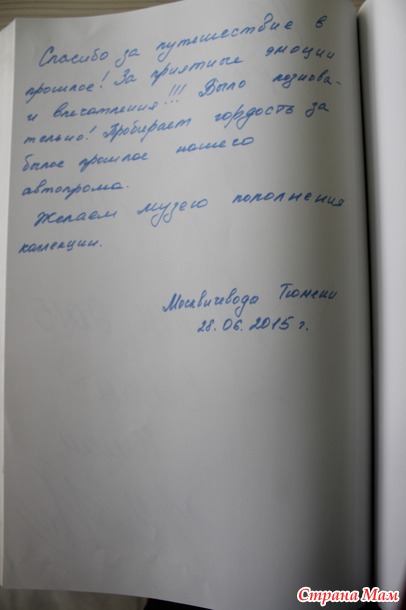 Спасибо за путешествие в
прошлое! За приятные эмоции
и впечатления!!! Было познова-
тельно! Пробирает гордость за
былое прошлое нашего
автопрома.
Желаем музею пополнения
коллекции.
Москвичеводы Тюмени
28.06.2015 г.
Страна Мам